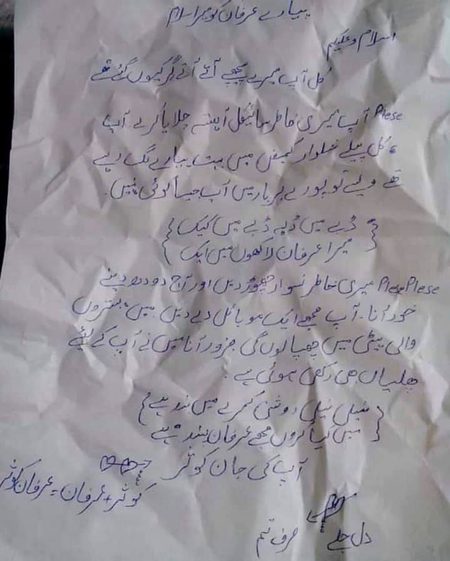 پیارے عرفان کو میرا سلام
اسلام و علیکم
کل آپ میرے پیچھے آتے آتے گر کیوں گئے تھے
Plese آپ میری خاطر سائیکل آہستہ چلایا کرے آپ
کل پیلے شلوار قمیض میں بہت پیارے لگ رہے
تھے ویسے تو پورے ہریار میں آپ جیسا کوئی نہیں
{ ڈبے میں ڈبہ ڈبے میں کیک }
{ میرا عرفان لاکھوں میں ایک }
Plese Plese میری خاطر نسوار چھوڑ دیں اور آج دودھ دینے
خود آنا۔ آپ مجھے ایک موبائل دے دیں میں بستروں
والی پیٹی میں چھپا لوں گی ضرور آنا میں نے آپ کے لیے
چھلیاں بھی رکھی ہوئی ہے۔
{ نیلی نیلی روشنی کمرے میں بند ہے }
{ میں کیا کروں مجھے عرفان پسند ہے }
آپ کی جان کوثر
کوثر + عرفان = عرفان کوثر
دل جلے صرف تم